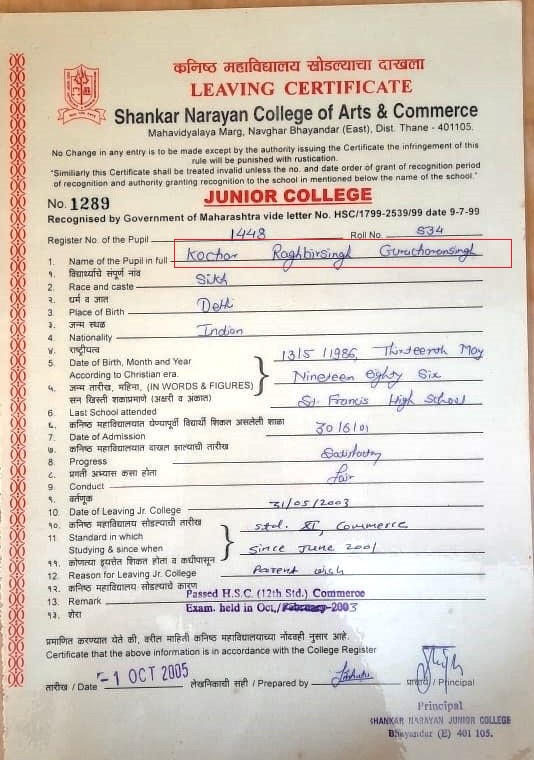 कनिष्ठ महाविद्यालय सोडल्याचा दाखला
LEAVING CERTIFICATE
Shankar Narayan College of Arts & Commerce
Mahavidyalaya Marg, Navghar Bhayandar (East), Dist. Thane - 401105.
No Change in any entry is to be made except by the authority issuing the Certificate the infringement of this
rule will be punished with rustication.
"Similiarly this Certificate shall be treated invalid unless the no. and date order of grant of recognition period
of recognition and authority granting recognition to the school in mentioned below the name of the school."
No. 1289 JUNIOR COLLEGE
Recognised by Government of Maharashtra vide letter No. HSC/1799-2539/99 date 9-7-99
Register No. of the Pupil 1448 Roll No. 534
1. Name of the Pupil in full Kochar Raghbirsingh Gurucharansingh
१. विद्यार्थ्याचे संपूर्ण नांव
2. Race and caste Sikh
२. धर्म व जात
3. Place of Birth Delhi
३. जन्म स्थळ
4. Nationality Indian
४. राष्ट्रीयत्व
5. Date of Birth, Month and Year 13/5/1986, Thirteenth May
According to Christian era. Nineteen Eighty Six
५. जन्म तारीख, महिना, (IN WORDS & FIGURES)
सन खिस्ती शकाप्रमाणे (अक्षरी व अंकात) St. Francis High School
6. Last School attended
६. कनिष्ठ महाविद्यालयात येण्यापूर्वी विद्यार्थी शिकत असलेली शाळा
7. Date of Admission 30/6/01
७. कनिष्ठ महाविद्यालयात दाखल झाल्याची तारीख
8. Progress Satisfactory
८. प्रगती अभ्यास कसा होता
9. Conduct fair
९. वर्तणूक
10. Date of Leaving Jr. College 31/05/2003
१०. कनिष्ठ महाविद्यालय सोडल्याची तारीख
11. Standard in which Std. XI, Commerce
Studying & since when Since June 2001
११. कोणत्या इयत्तेत शिकत होता व कधीपासून
12. Reason for Leaving Jr. College Parent wish
१२. कनिष्ठ महाविद्यालय सोडल्याचे कारण
13. Remark Passed H.S.C. (12th Std.) Commerce
१३. शेरा Exam. held in Oct./February-2003
प्रमाणित करण्यात येते की, वरील माहिती कनिष्ठ महाविद्यालयाच्या नोंदवही नुसार आहे.
Certificate that the above information is in accordance with the College Register
तारीख / Date -1 OCT 2005 लेखनिकाची सही / Prepared by प्राचार्य / Principal
Principal
SHANKAR NARAYAN JUNIOR COLLEGE
Bhayandar (E) 401 105.